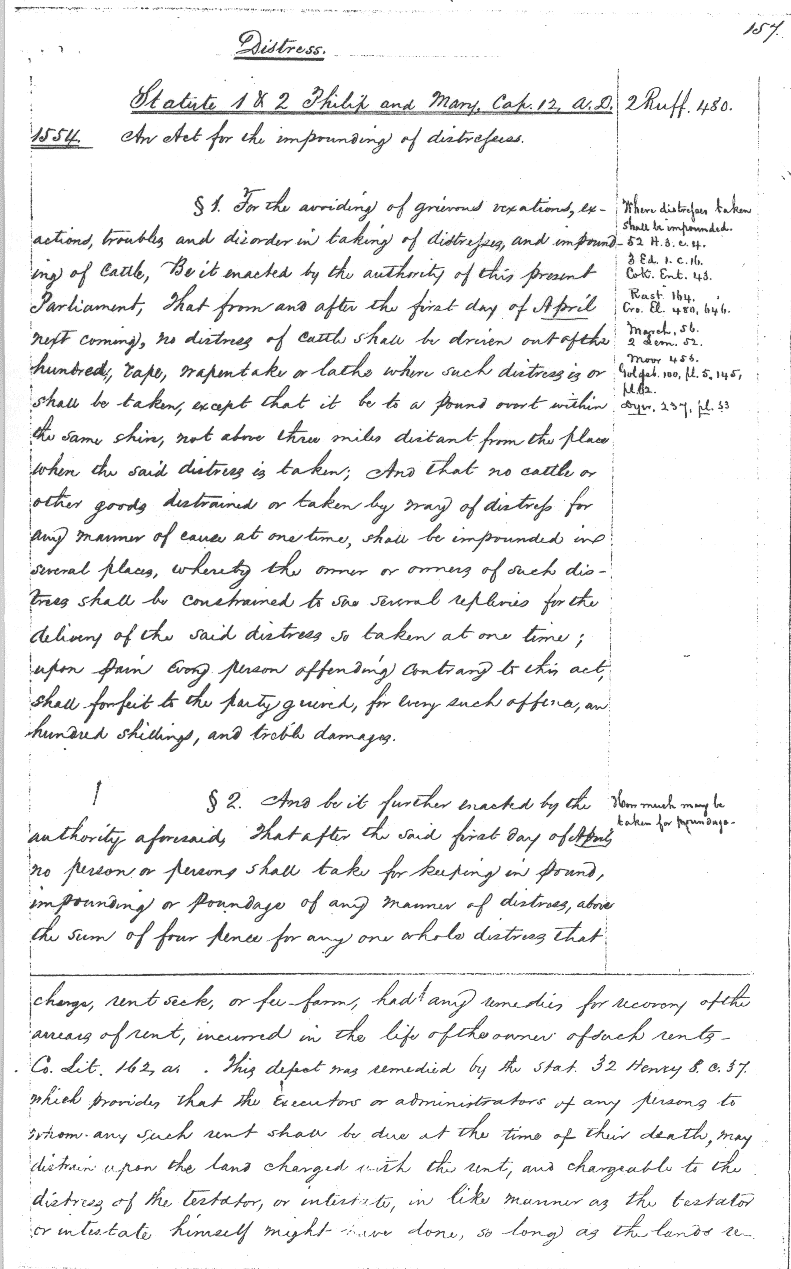 157
Distress.
Statute 1 & 2 Philip and Mary, Cap. 12, A.D.
2 Ruff. 480.
1554. An Act for the impounding of distresses.
§ 1. For the avoiding of grievous vexations, ex-
actions, troubles and disorder in taking of distresses, and impound-
ing of cattle, Be it enacted by the authority of this present
Parliament, That from and after the first day of April
next coming, no distress of cattle shall be driven out of the
hundred, rape, wapentake or lathe where such distress is or
shall be taken, except that it be to a pound overt within
the same shire, not above three miles distant from the place
where the said distress is taken; And that no cattle or
other goods distrained or taken by way of distress for
any manner of cause at one time, shall be impounded in
several places, whereby the owner or owners of such dis-
tress shall be constrained to sue several replevies for the
delivery of the said distress so taken at one time;
upon pain every person offending contrary to this act,
shall forfeit to the party grieved, for every such offence, an
hundred shillings, and treble damages.
Where distresses taken
shall be impounded.
52 H. 3. c. 4.
3 Ed. 1. c. 16.
Cok. Ent. 43.
Rast. 164.
Cro. El. 480, 646.
March, 56.
2 Leon. 52.
Moor 453.
Goldsb. 100, pl. 5, 145,
pl. 62.
Dyer, 237, pl. 33
§ 2. And be it further enacted by the
authority aforesaid, That after the said first day of April
no person or persons shall take for keeping in pound,
impounding or poundage of any manner of distress, above
the sum of four pence for any one whole distress that
How much may be
taken for poundage.
charge, rent seck, or fee-farm, had any remedies for recovery of the
arrears of rent, incurred in the life of the owner of such rents-
Co. Lit. 162, a. This defect was remedied by the Stat. 32 Henry 8. c. 37.
which provides that the Executors or administrators of any persons to
whom any such rent shall be due at the time of their death, may
distrain upon the land charged with the rent, and chargeable to the
distress of the testator, or intestate, in like manner as the testator
or intestate himself might have done, so long as the lands re-